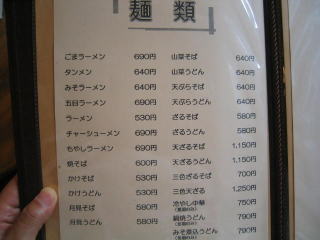 麺類
ごまラーメン 690円
タンメン 640円
みそラーメン 640円
五目ラーメン 690円
ラーメン 530円
チャーシューメン 690円
もやしラーメン 690円
焼そば 600円
かけそば 530円
かけうどん 530円
月見そば 580円
月見うどん 580円
山菜そば 640円
山菜うどん 640円
天ぷらそば 640円
天ぷらうどん 640円
ざるそば 580円
ざるうどん 580円
天ざるそば 1,150円
天ざるうどん 1,150円
三色ざるそば 700円
三色天ざる 1,250円
冷やし中華 750円
鍋焼うどん 790円
みそ煮込うどん 790円